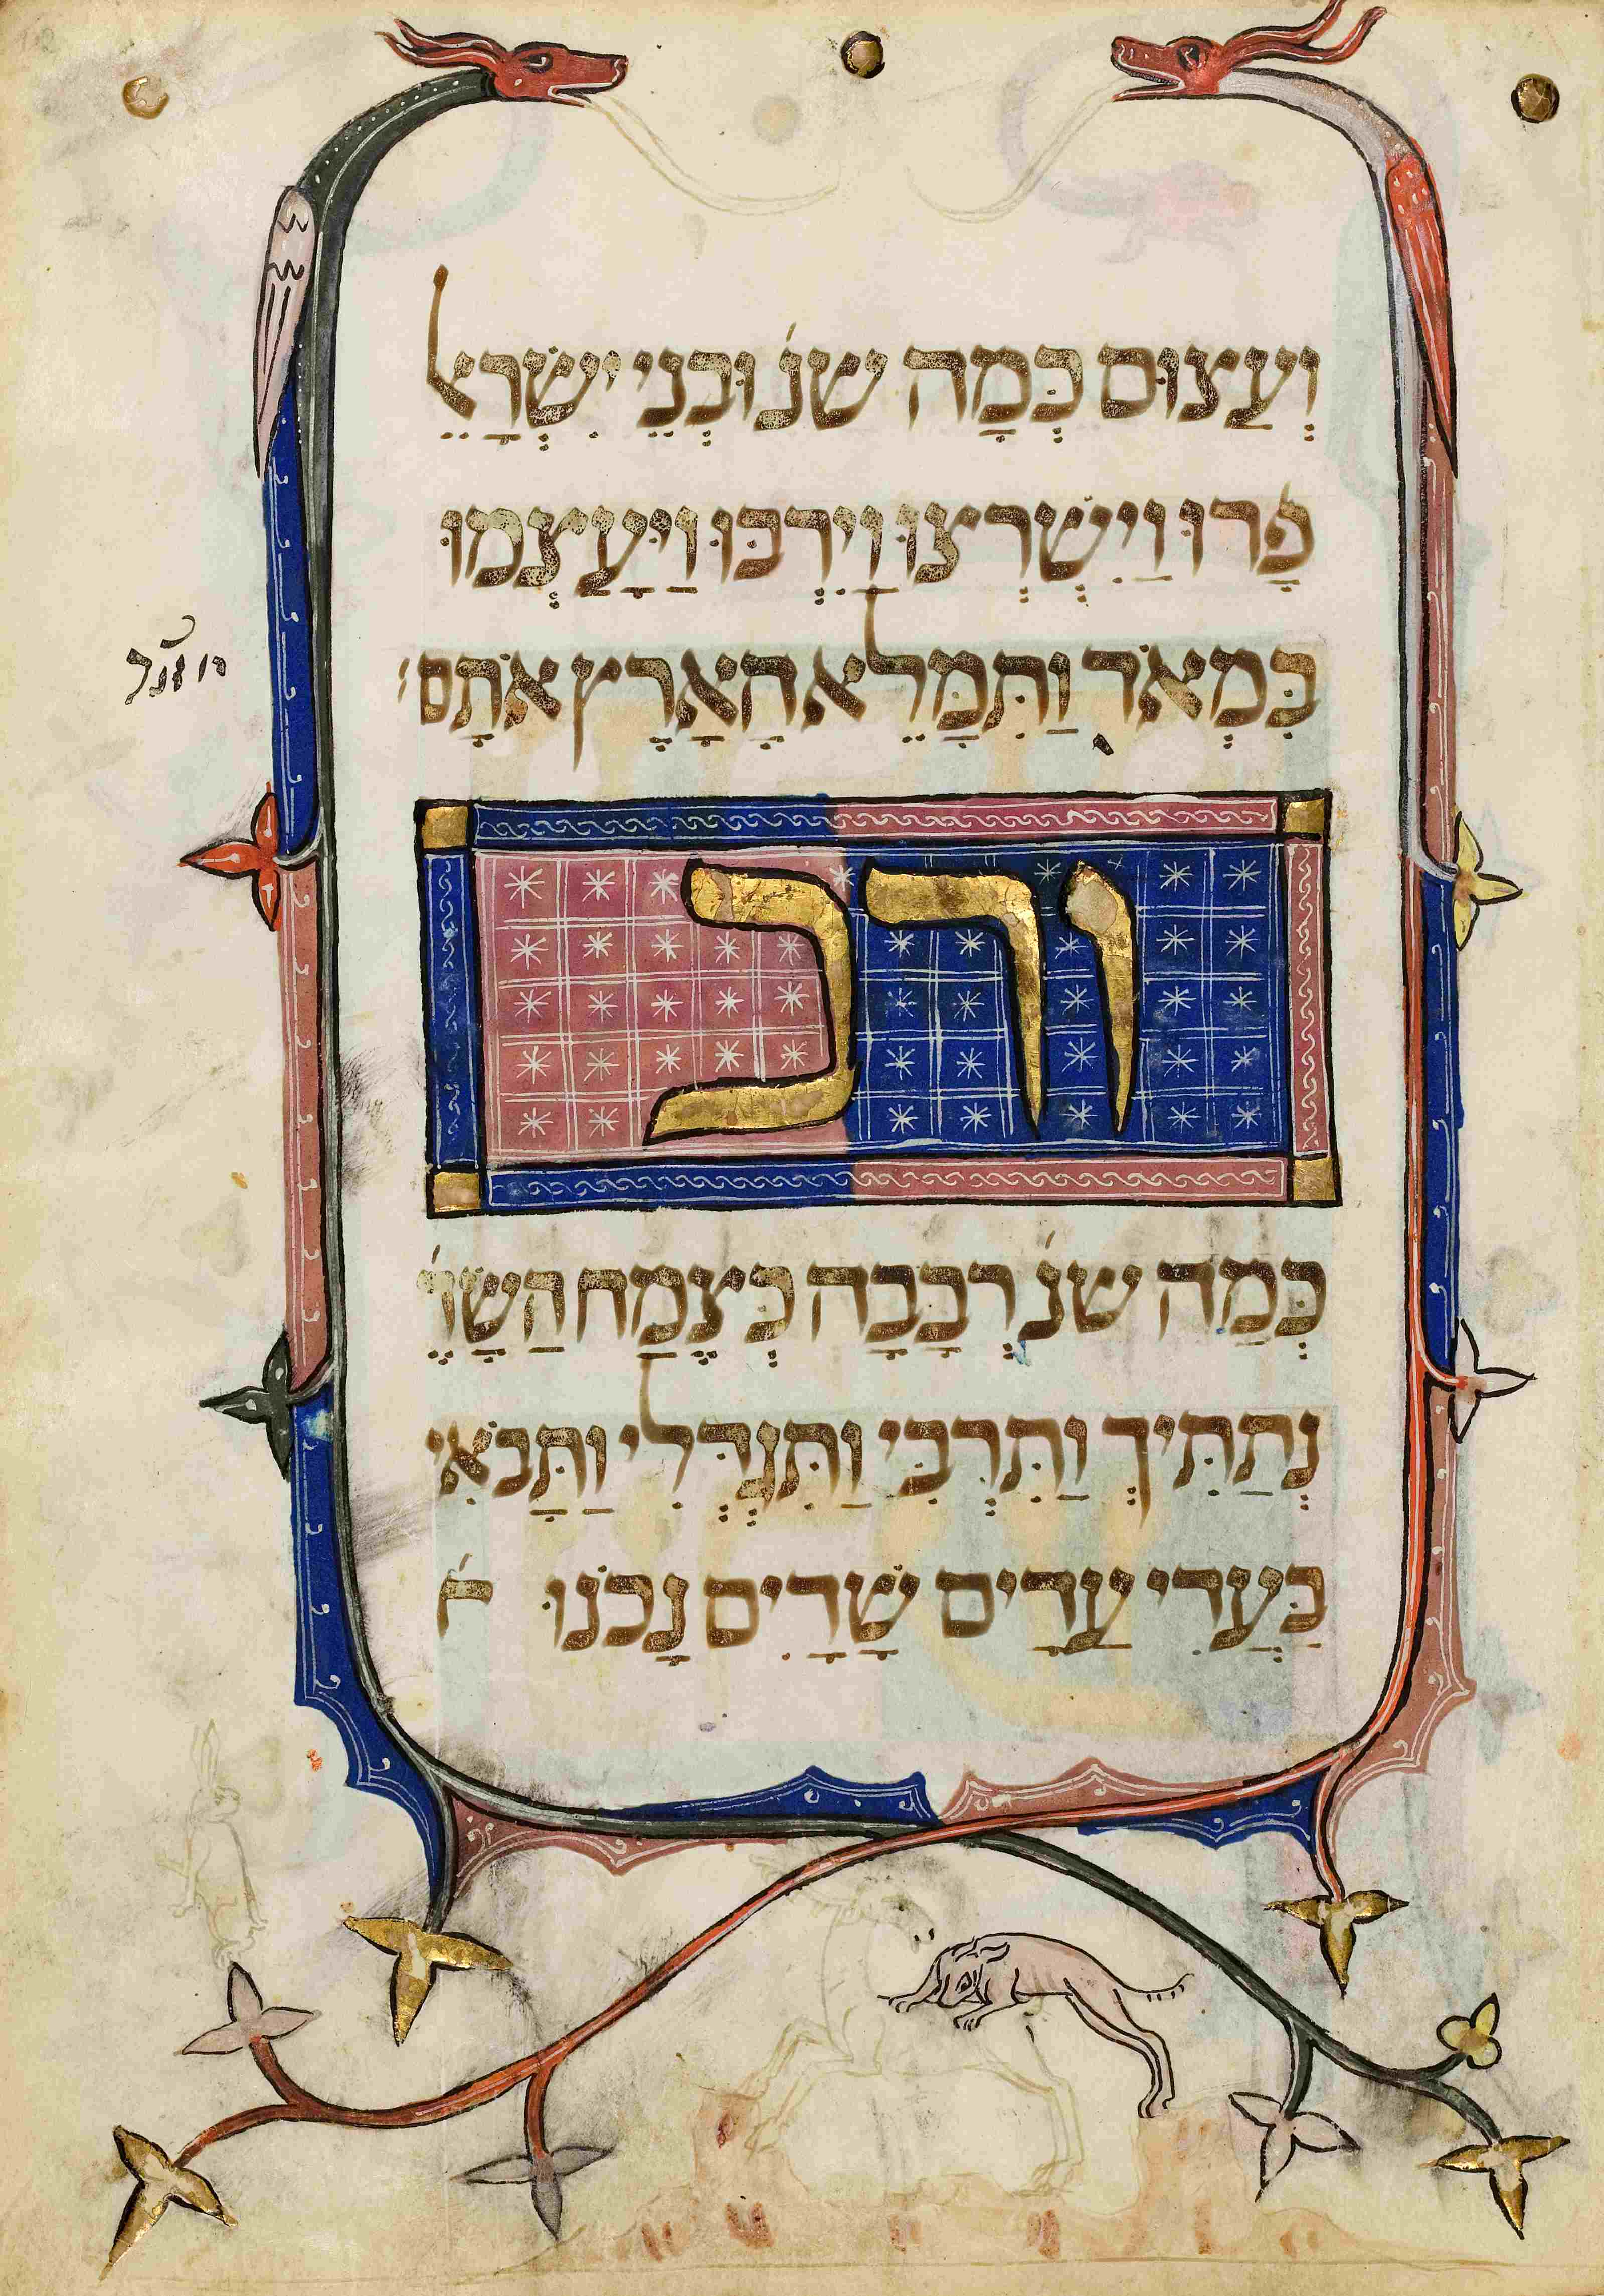 וְעַצוּם כְּמָה שנ׳ וּבְנֵי יִשְׂרָאֵל
פָּרוּ וַיִשְׁרְצוּ וַיִרְבּוּ וַיַּעַצְמוּ
בִּמְאֹד וַתִּמָּלֵא הָאָרֶץ אֹתָם׃
ורב
כְּמַה שנ׳ רְבָבָה כְּצֶמַח הַשָּׂדֶ׳
נְתַתִּיךְ וַתִּרְבִּי וַתִּגְדְּלִי וַתָּבֹאִי
בַּעֲדִי עֲדָיִים שָׁדַיִם נָכֹנוּ